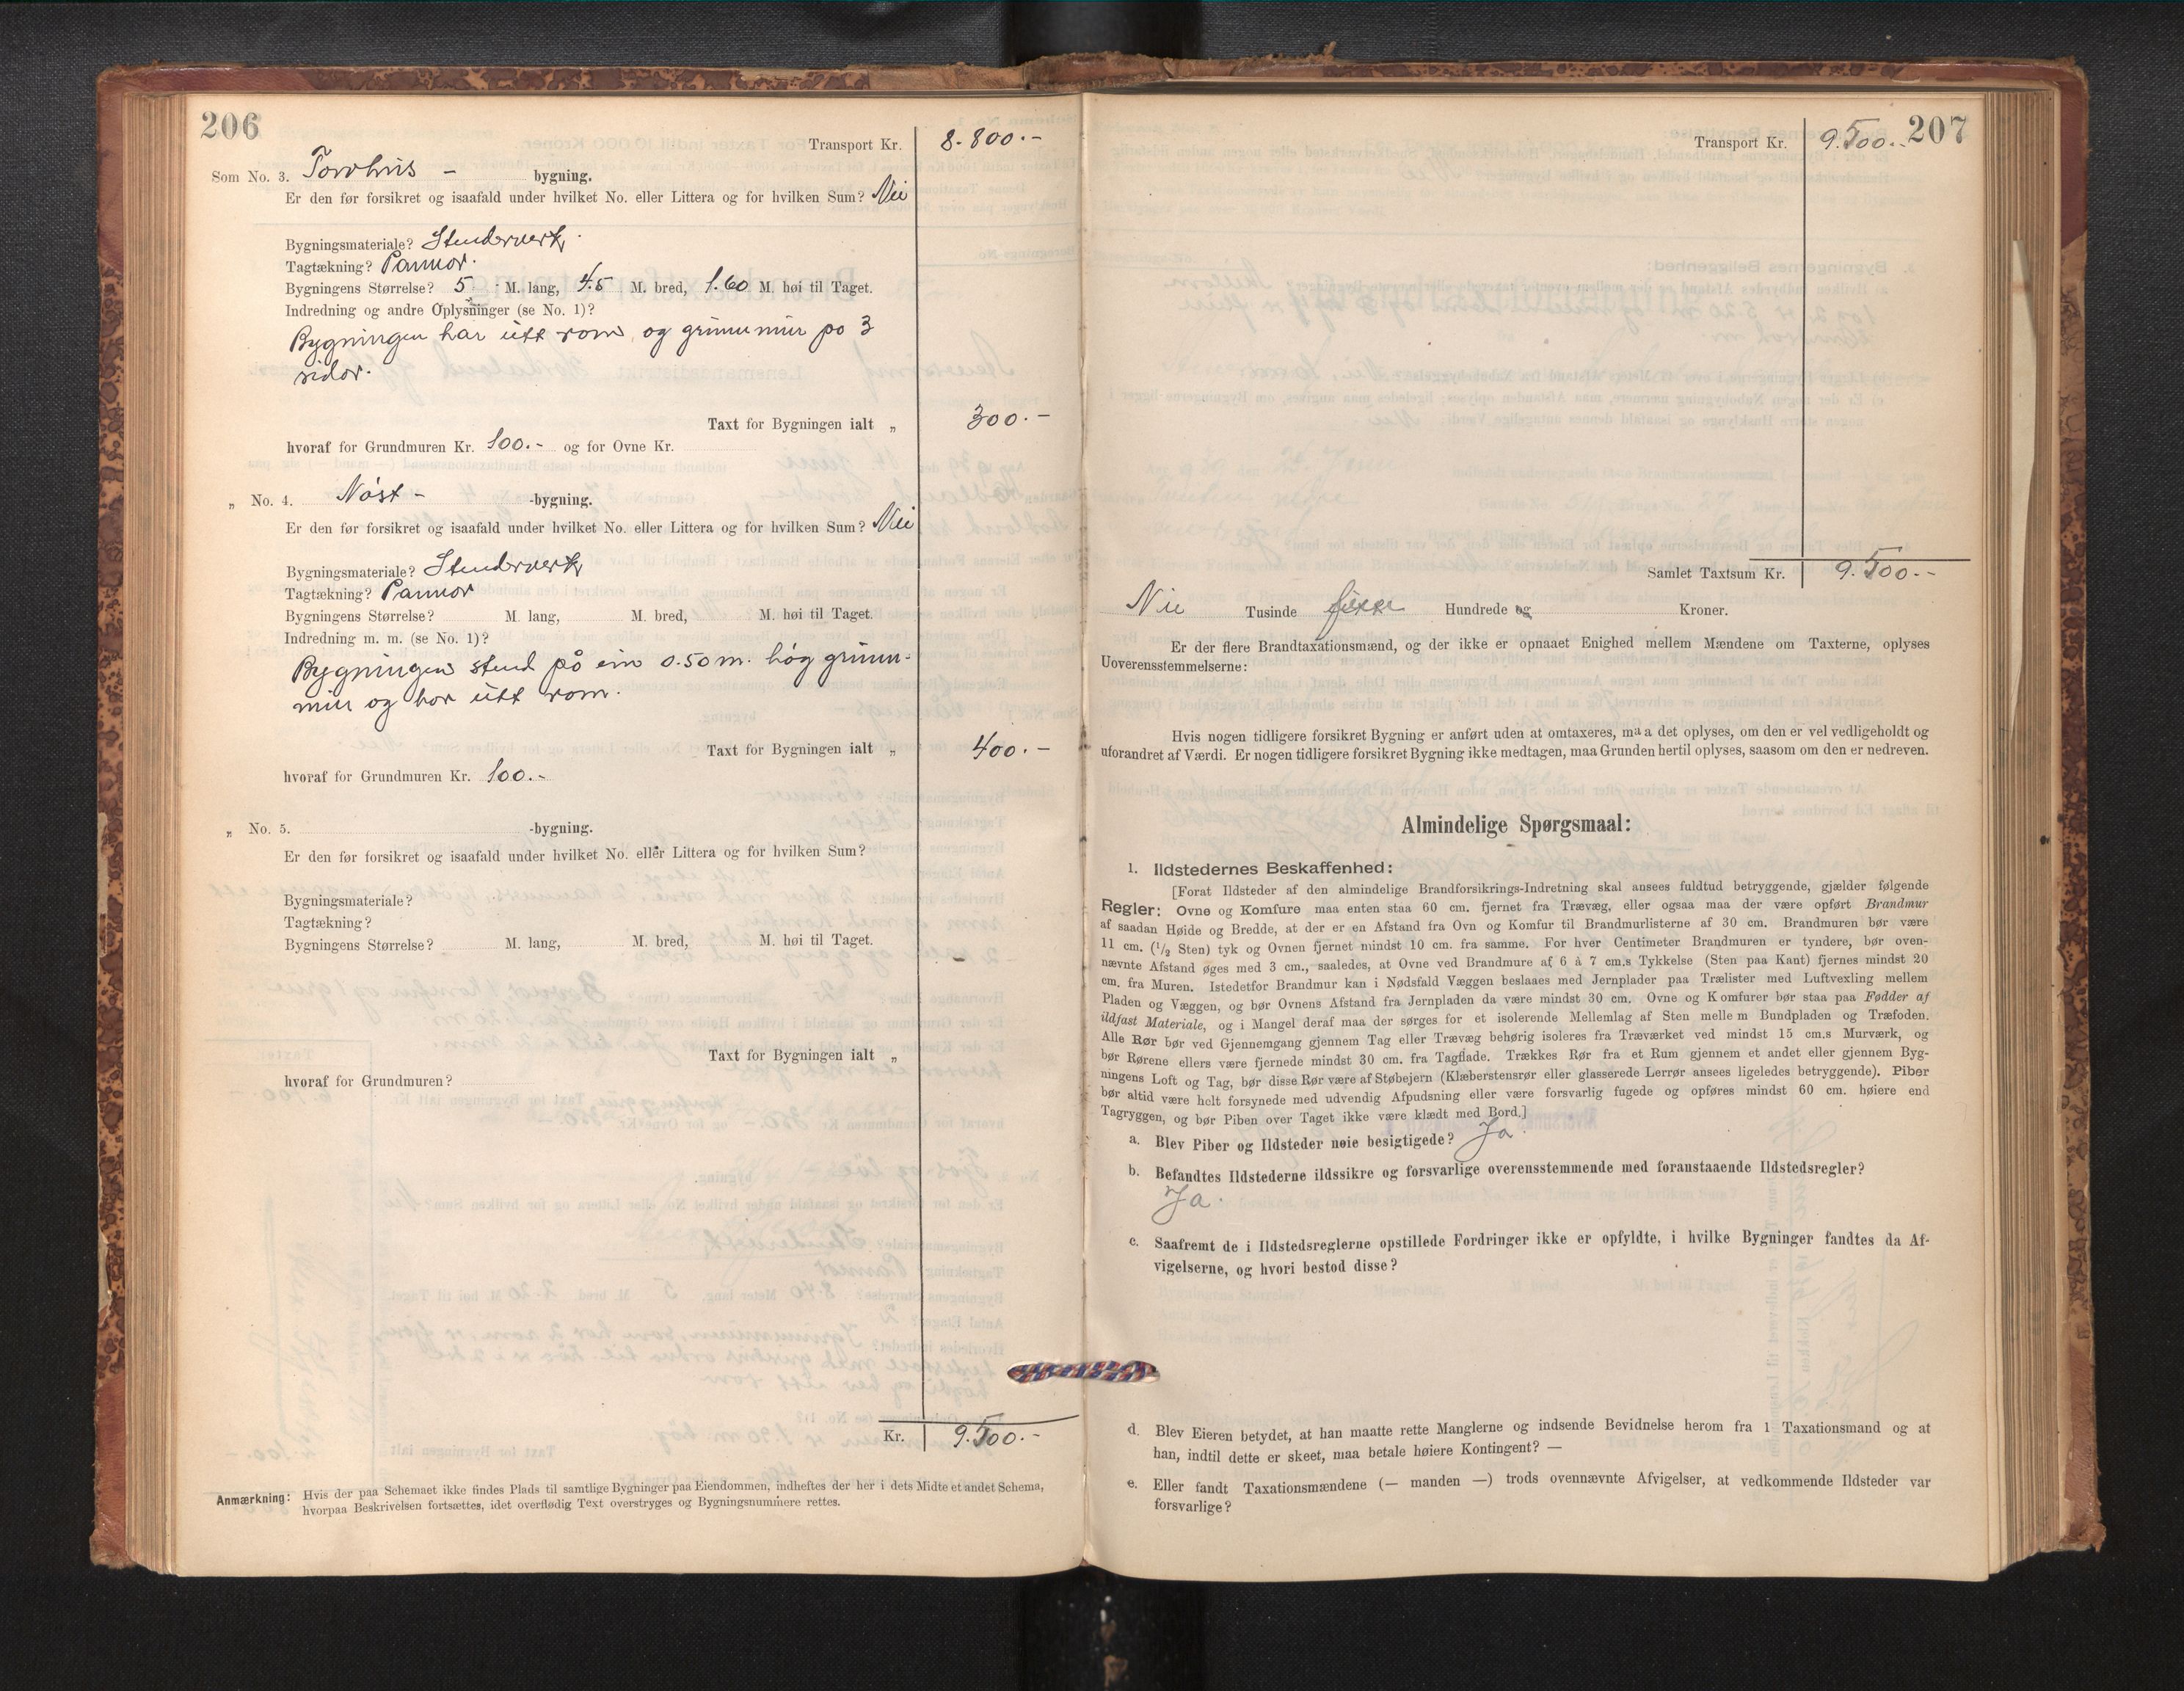 206
Transport Kr. 8.800.-
Som No. 3. Torvhus - bygning.
Er den før forsikret og isaafald under hvilket No. eller Littera og for hvilken Sum? Nei
Bygningsmateriale? Stenderverk.
Tagtækning? Pannor.
Bygningens Størrelse? 5 M. lang, 4.5 M. bred, 1.60 M. høi til Taget.
Indredning og andre Oplysninger (se No. 1)?
Bygningen har eitt rom og grunnmur po 3
sidor.
Taxt for Bygningen ialt „ 300.-
hvoraf for Grundmuren Kr. 100.- og for Ovne Kr.
„ No. 4. Nøst - -bygning.
Er den før forsikret og isaafald under hvilket No. eller Littera og for hvilken Sum? Nei
Bygningsmateriale? Stenderverk
Tagtækning? Pannor
Bygningens Størrelse? M. lang, M. bred, M. høi til Taget.
Indredning m. m. (se No. 1)?
Bygningen stend på ein 0.50 m. høg grunn-
mur og har eitt rom.
Taxt for Bygningen ialt „ 400.-
hvoraf for Grundmuren Kr. 100.-
„ No. 5. -bygning.
Er den før forsikret og isaafald under hvilket No. eller Littera og for hvilken Sum?
Bygningsmateriale?
Tagtækning?
Bygningens Størrelse? M. lang, M. bred, M. høi til Taget.
Taxt for Bygningen ialt „
hvoraf for Grundmuren?
Kr. 9.500.-
Anmærkning: Hvis der paa Schemaet ikke findes Plads til samtlige Bygninger paa Eiendommen, indheftes der her i dets Midte et andet Schema,
hvorpaa Beskrivelsen fortsættes, idet overflødig Text overstryges og Bygningsnummere rettes.
207
Transport Kr. 9.500.-
Samlet Taxtsum Kr. 9.500.-
Nie Tusinde Hundrede og Kroner.
Er der flere Brandtaxationsmænd, og der ikke er opnaaet Enighed mellem Mændene om Taxterne, oplyses
Uoverensstemmelserne:
Hvis nogen tidligere forsikret Bygning er anført uden at omtaxeres, maa det oplyses, om den er vel vedligeholdt og
uforandret af Værdi. Er nogen tidligere forsikret Bygning ikke medtagen, maa Grunden hertil oplyses, saasom om den er nedreven.
Almindelige Spørgsmaal:
1. Ildstedernes Beskaffenhed:
[Forat Ildsteder af den almindelige Brandforsikrings-Indretning skal ansees fuldtud betryggende, gjælder følgende
Regler: Ovne og Komfure maa enten staa 60 cm. fjernet fra Trævæg, eller ogsaa maa der være opført Brandmur
af saadan Høide og Bredde, at der er en Afstand fra Ovn og Komfur til Brandmurlisterne af 30 cm. Brandmuren bør være
11 cm. (1/2 Sten) tyk og Ovnen fjernet mindst 10 cm. fra samme. For hver Centimeter Brandmuren er tyndere, bør oven-
nævnte Afstand øges med 3 cm., saaledes, at Ovne ved Brandmure af 6 à 7 cm.s Tykkelse (Sten paa Kant) fjernes mindst 20
cm. fra Muren. Istedetfor Brandmur kan i Nødsfald Væggen beslaaes med Jernplader paa Trælister med Luftvexling mellem
Pladen og Væggen, og bør Ovnens Afstand fra Jernpladen da være mindst 30 cm. Ovne og Komfurer bør staa paa Fødder af
ildfast Materiale, og i Mangel deraf maa der sørges for et isolerende Mellemlag af Sten mellem Bundpladen og Træfoden.
Alle Rør bør ved Gjennemgang gjennem Tag eller Trævæg behørig isoleres fra Træværket ved mindst 15 cm.s Murværk, og
bør Rørene ellers være fjernede mindst 30 cm. fra Tagflade. Trækkes Rør fra et Rum gjennem et andet eller gjennem Byg-
ningens Loft og Tag, bør disse Rør være af Støbejern (Klæberstensrør eller glasserede Lerrør ansees ligeledes betryggende). Piber
bør altid være helt forsynede med udvendig Afpudsning eller være forsvarlig fugede og opføres mindst 60 cm. høiere end
Tagryggen, og bør Piben over Taget ikke være klædt med Bord.]
a. Blev Piber og Ildsteder nøie besigtigede? Ja
b. Befandtes Ildstederne ildssikre og forsvarlige overensstemmende med foranstaaende Ildstedsregler?
Ja.
c. Saafremt de i Ildstedsreglerne opstillede Fordringer ikke er opfyldte, i hvilke Bygninger fandtes da Af-
vigelserne, og hvori bestod disse?
d. Blev Eieren betydet, at han maatte rette Manglerne og indsende Bevidnelse herom fra 1 Taxationsmand og at
han, indtil dette er skeet, maa betale høiere Kontingent? —
e. Eller fandt Taxationsmændene (— manden —) trods ovennævnte Afvigelser, at vedkommende Ildsteder var
forsvarlige?